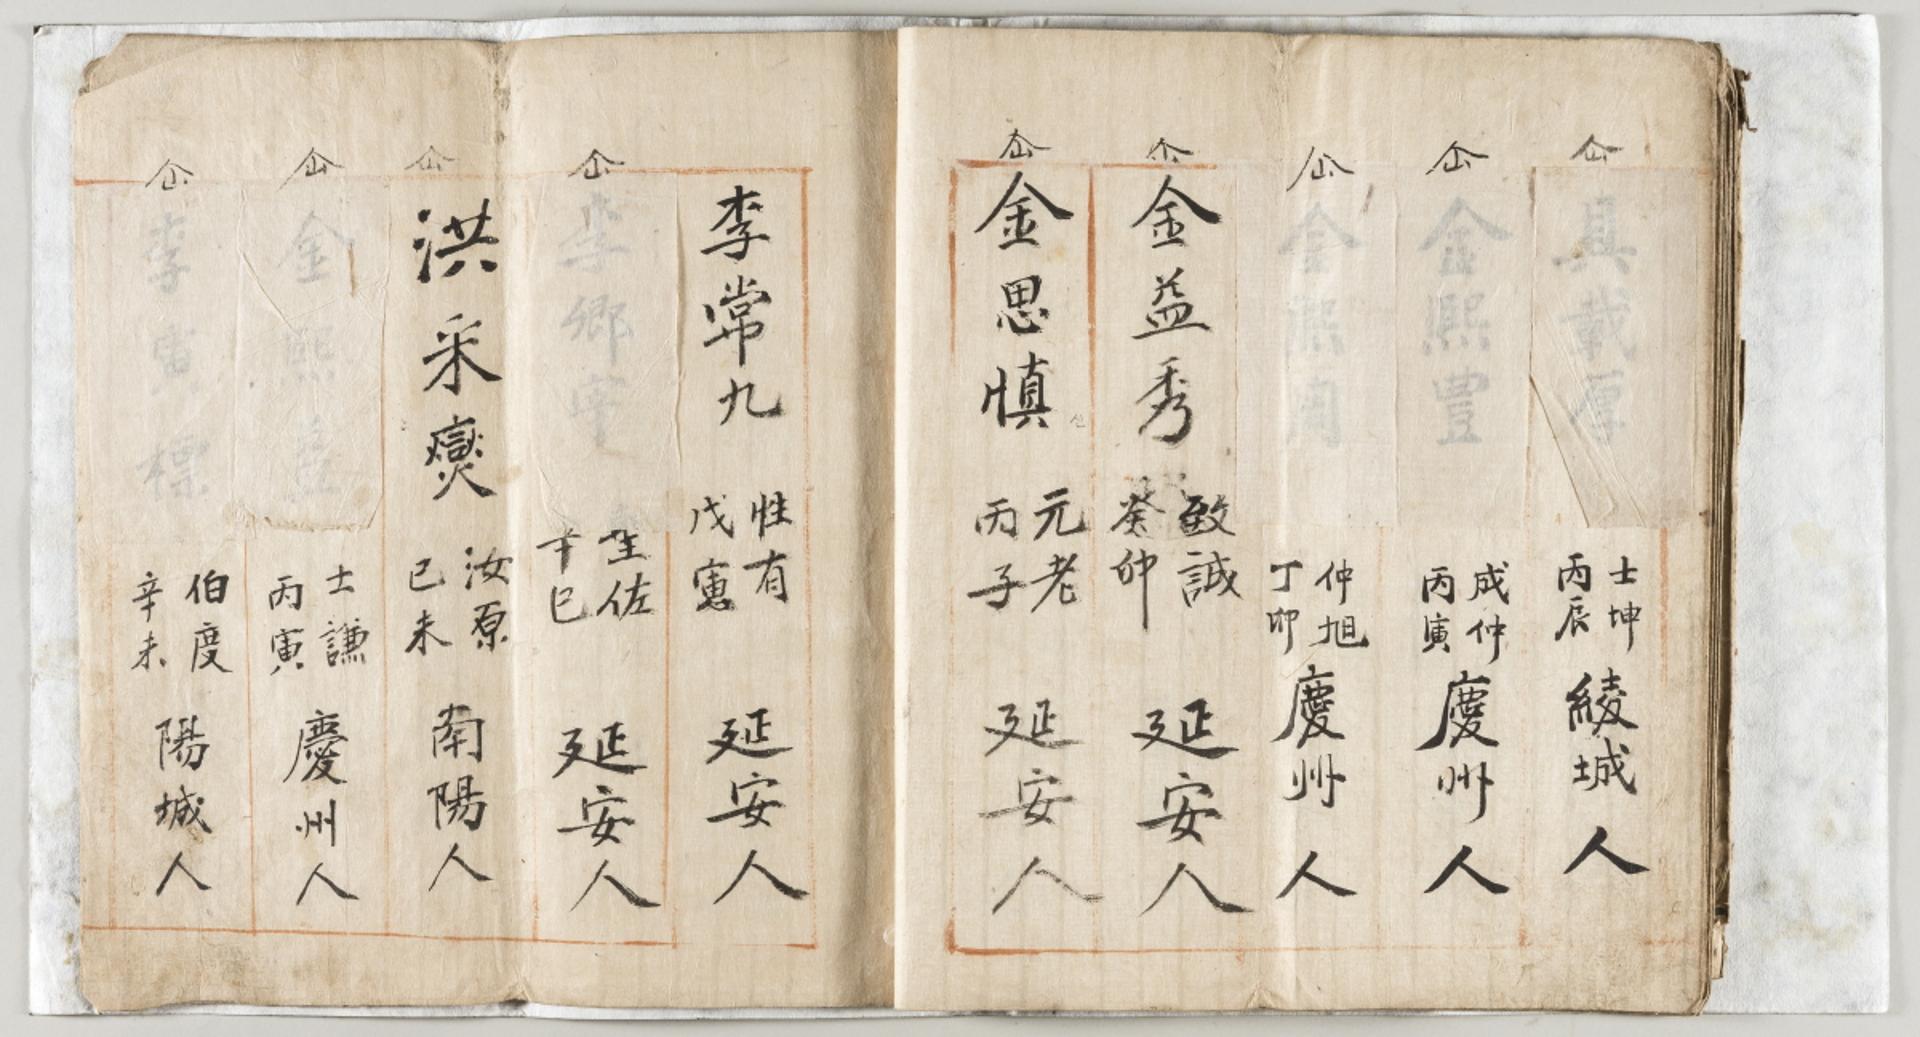 仚 具載厚 士坤 丙辰 綾城人
仚 金熙豊 成仲 丙寅 慶州人
仚 金熙周 仲旭 丁卯 慶州人
仚 金益秀 致誠 癸卯 延安人
仚 金思慎 元老 丙子 延安人
李常九 性有 戊寅 延安人
仚 李鄉寧 聖佐 辛巳 延安人
仚 洪采燮 汝原 己未 南陽人
仚 金熙益 士謙 丙寅 慶州人
仚 李寅標 伯度 辛未 陽城人